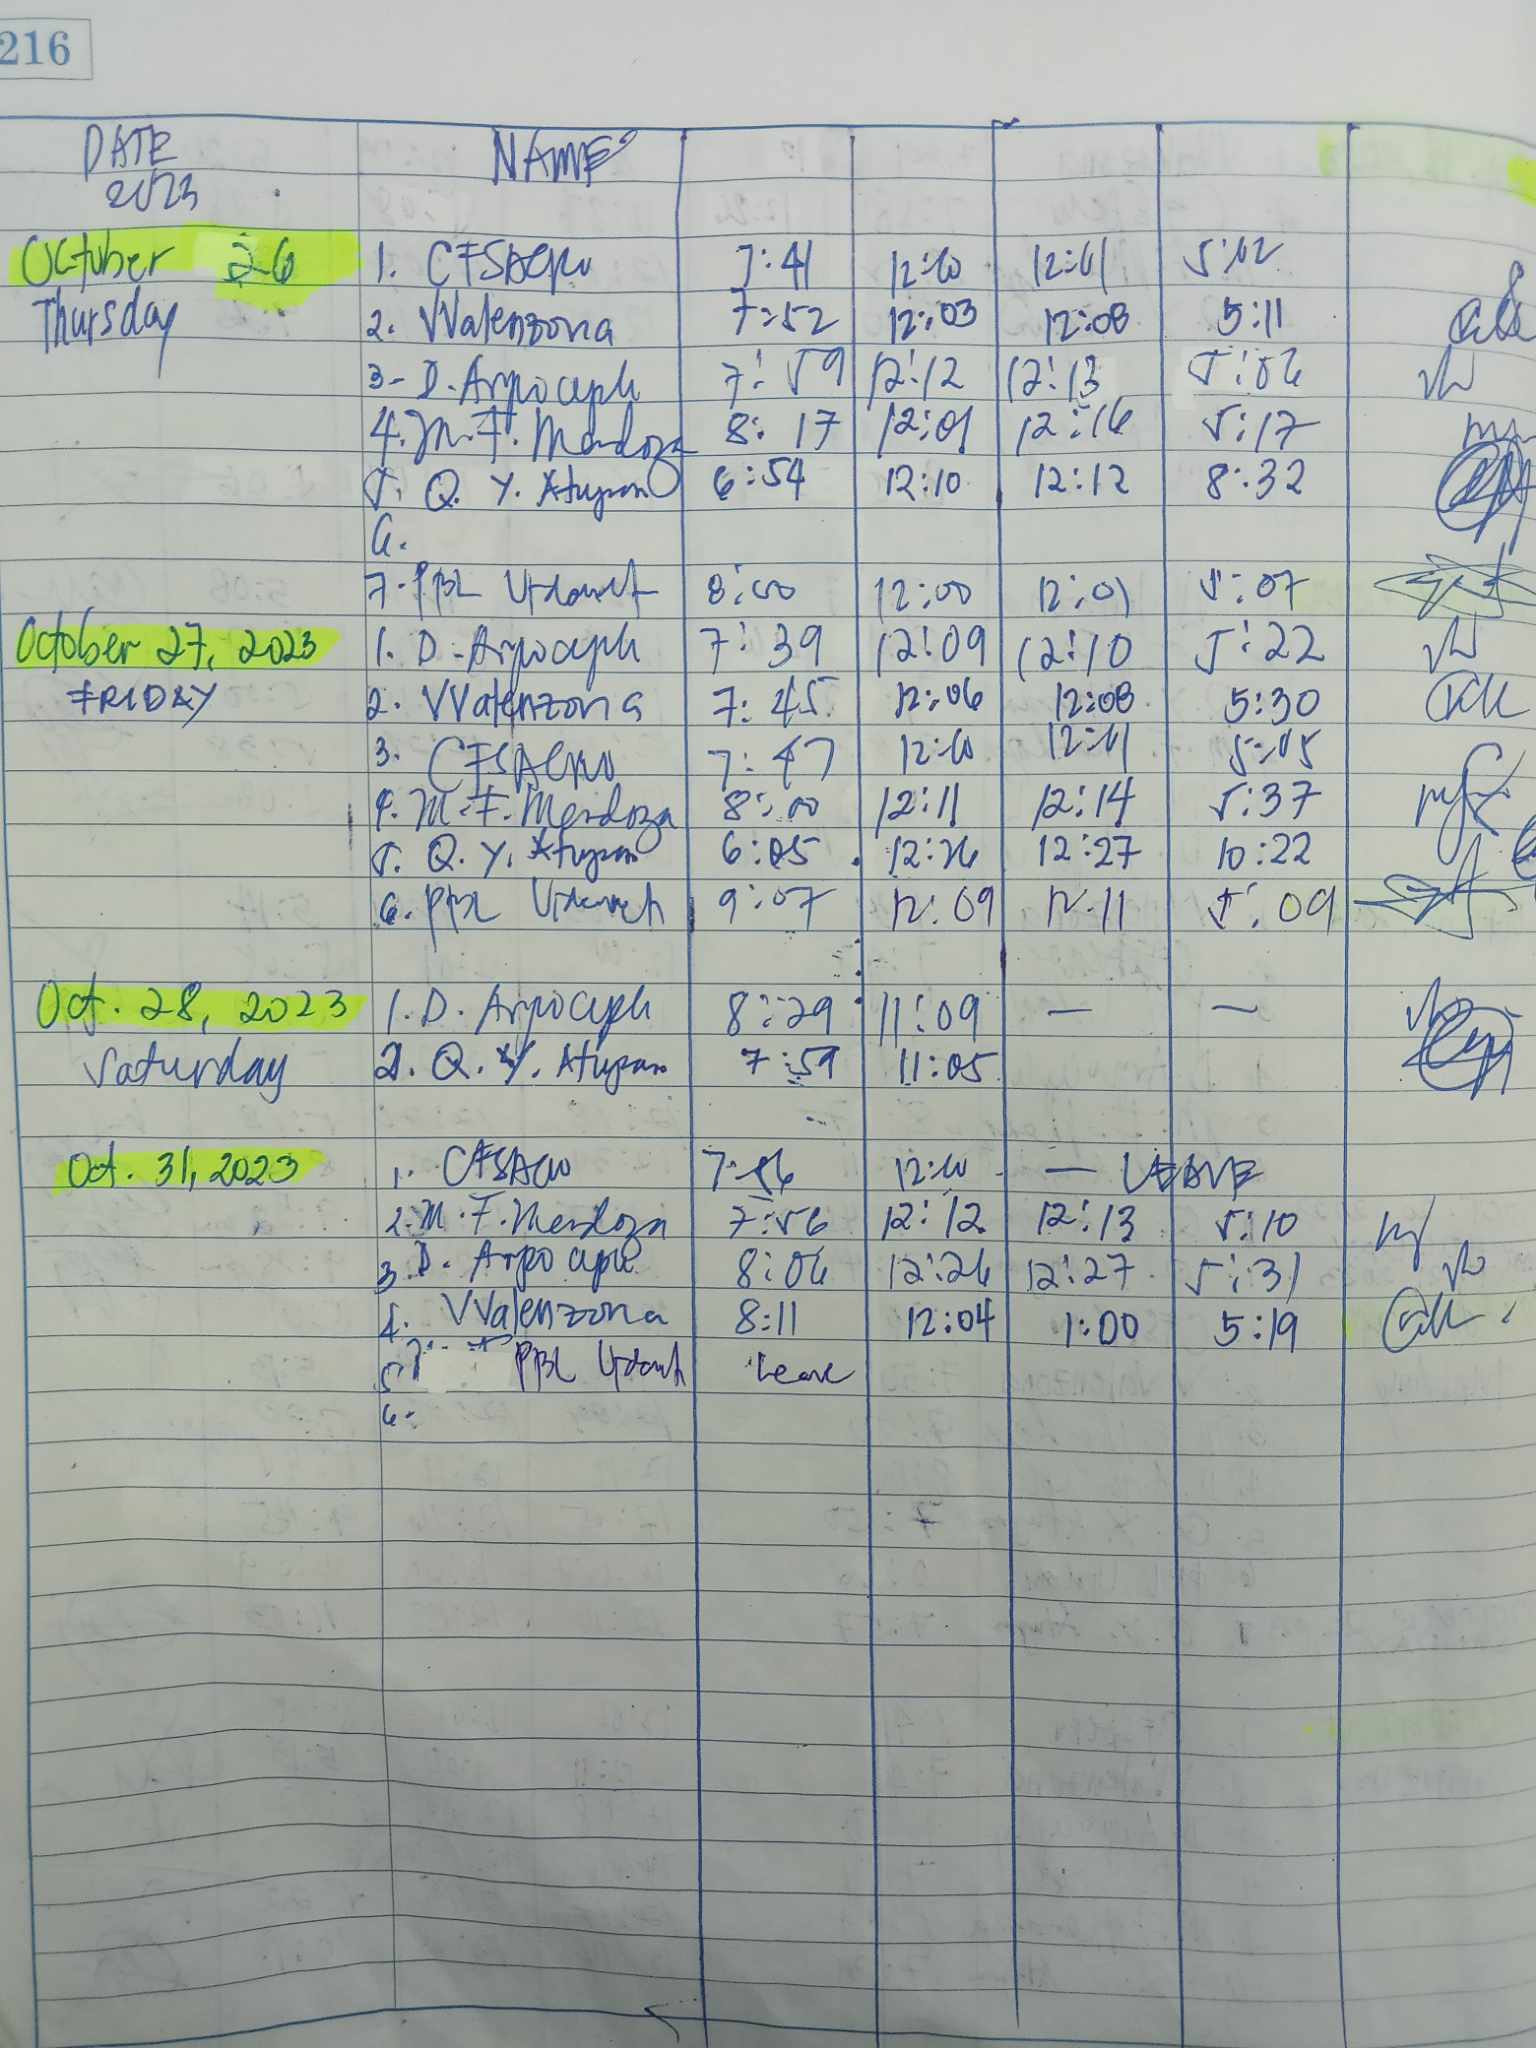 216
DATE NAME
2023
October 26 1. CFSAero 7:41 12:00 12:01 5:02
Thursday 2. VValenzona 7:52 12:03 12:08 5:11
3- D. 7:59 12:12 12:13 5:06
4. M. F. Mendoza 8:17 12:01 12:16 5:17
5. Q. Y. Atupan 6:54 12:10 12:12 8:32
6.
7. PBL 8:00 12:00 12:01 5:07
October 27, 2023 1. D. 7:39 12:09 12:10 5:22
FRIDAY 2. VValenzona 7:45 12:06 12:08 5:30
3. CFSAero 7:47 12:00 12:01 5:05
4. M. F. Mendoza 8:00 12:11 12:14 5:37
5. Q. Y. Atupan 6:05 12:26 12:27 10:22
6. PBL 9:07 12:09 12:11 5:09
Oct. 28, 2023 1. D. 8:29 11:09 — —
Saturday 2. Q. Y. Atupan 7:59 11:05
Oct. 31, 2023 1. CFSAero 12:00 — LEAVE
2. M. F. Mendoza 7:56 12:12 12:13 5:10
3. D. 8:06 12:26 12:27 5:31
4. VValenzona 8:11 12:04 1:00 5:19
5 PBL Leave
6.